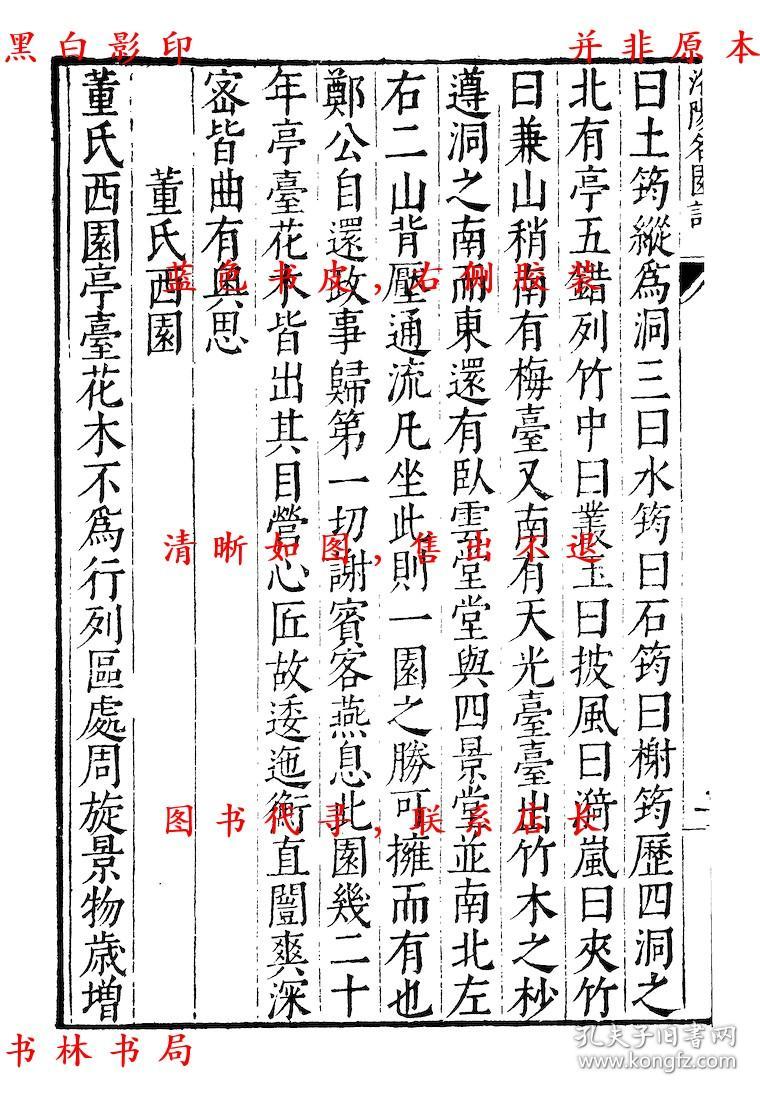 黑白影印
并非原本
洛陽名園記
曰土筠縱為洞三曰水筠曰石筠曰榭筠歷四洞之
北有亭五錯列竹中曰叢玉曰披風曰漪嵐曰夾竹
曰兼山稍南有梅臺又南有天光臺臺出竹木之杪
遵洞之南而東還有臥雲堂堂與四景堂並南北左
右二山背壓通流凡坐此則一園之勝可擁而有也
鄭公自還政事歸第一切謝賓客燕息此園幾二十
年亭臺花木皆出其目營心匠故逶迤衡直闓爽深
宻皆曲有奧思
董氏西園
董氏西園亭臺花木不為行列區處周旋景物歲增
蓝色书皮,右侧胶装
清晰如图,售出不退
图书代寻,联系店长
书林书局
孔夫子旧书网
www.kongfz.com